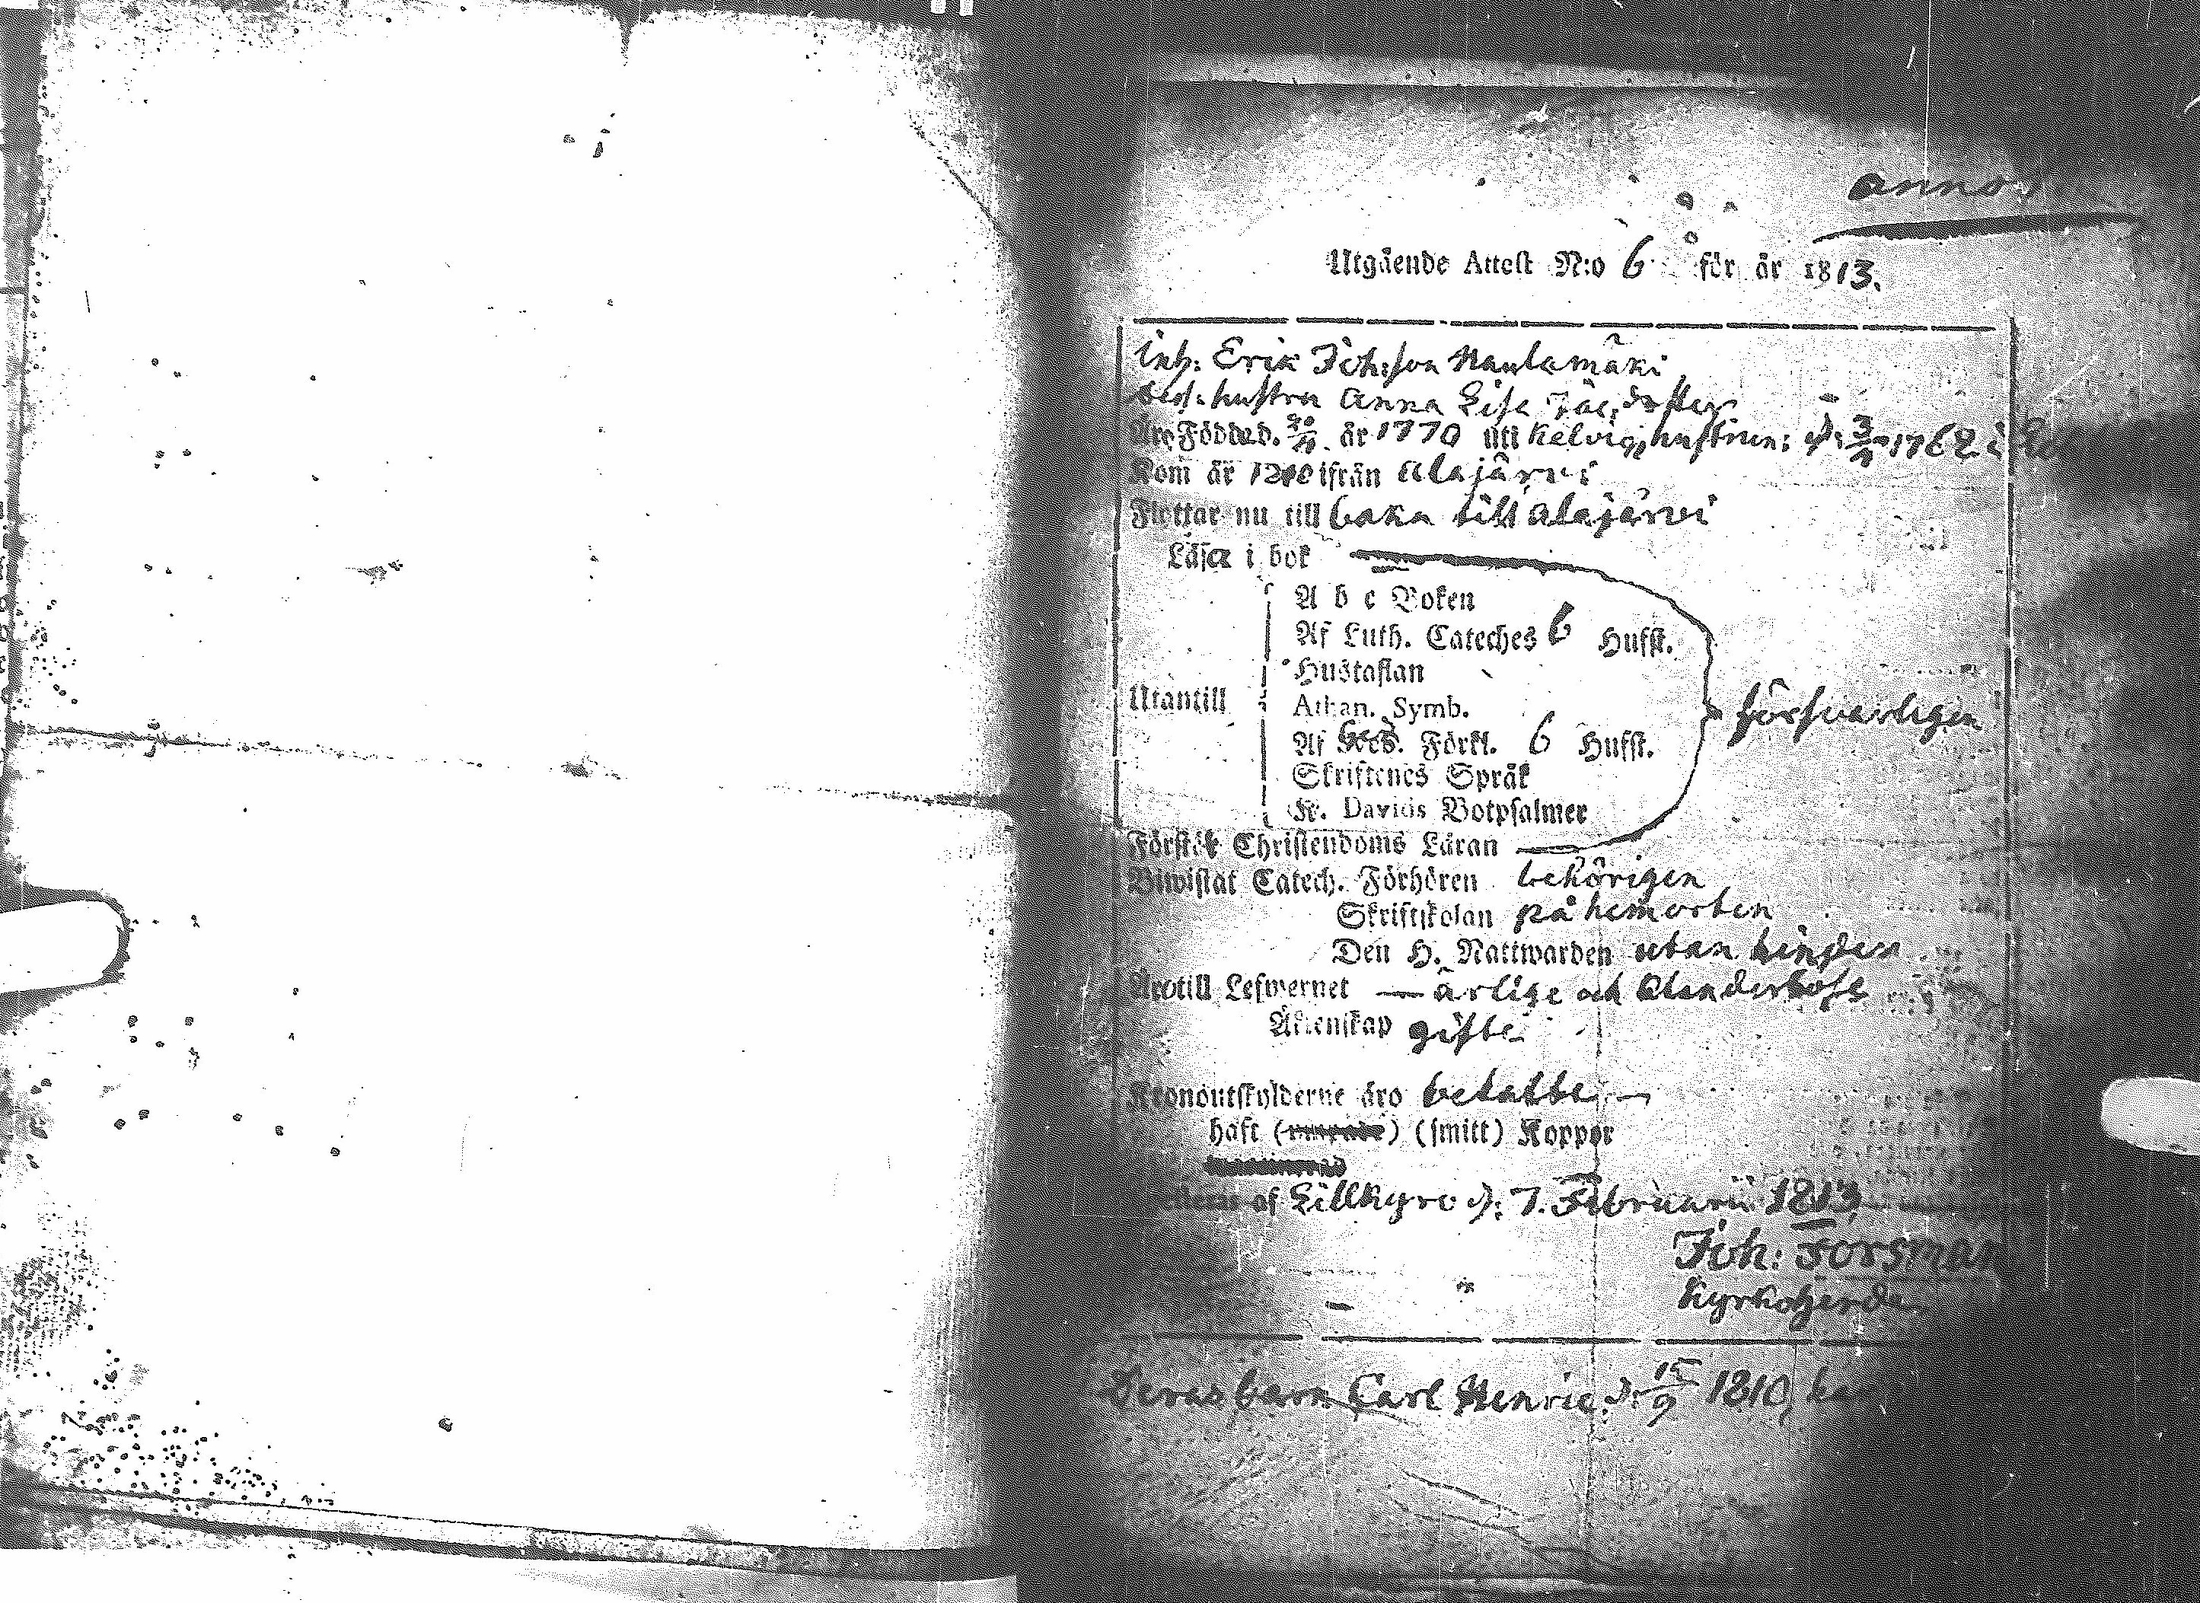 anno
Utgående Attest N:o 6 för år 1813.
inh: Erik Joh:son Nautamäki
des: hustru Anna Lisa Jac:dotter
Äro Födde d. år 1770 uti Kelvio, hustrun: d: 3/ 1762 i
Kom år ifrån Alajärvi
Flyttar nu till baka till Alajärvi
Läsa i bok
A b c Boken
Af Luth. Cateches 6 Hufst.
Hustaflan
Utantill
Athan. Symb.
Af Förkl. 6 Hufst.
Skriftenes Språk
K. Davids Botpsalmer
försvarligen
Förstå Christendoms Läran
Biwistat Catech. Förhören behörigen
Skriftskolan på hemorten
Den H. Nattwarden utan hinder
Äro till Lefwernet — ärlige och
Äktenskap gifte
Kronoutskylderne äro betalte —
haft (smitt) Koppor
af Lillkyro d: 7. Februarii 1813
Joh: Forsman
Kyrkoherde
Deras barn Carl Henric d: 15/9 1810,